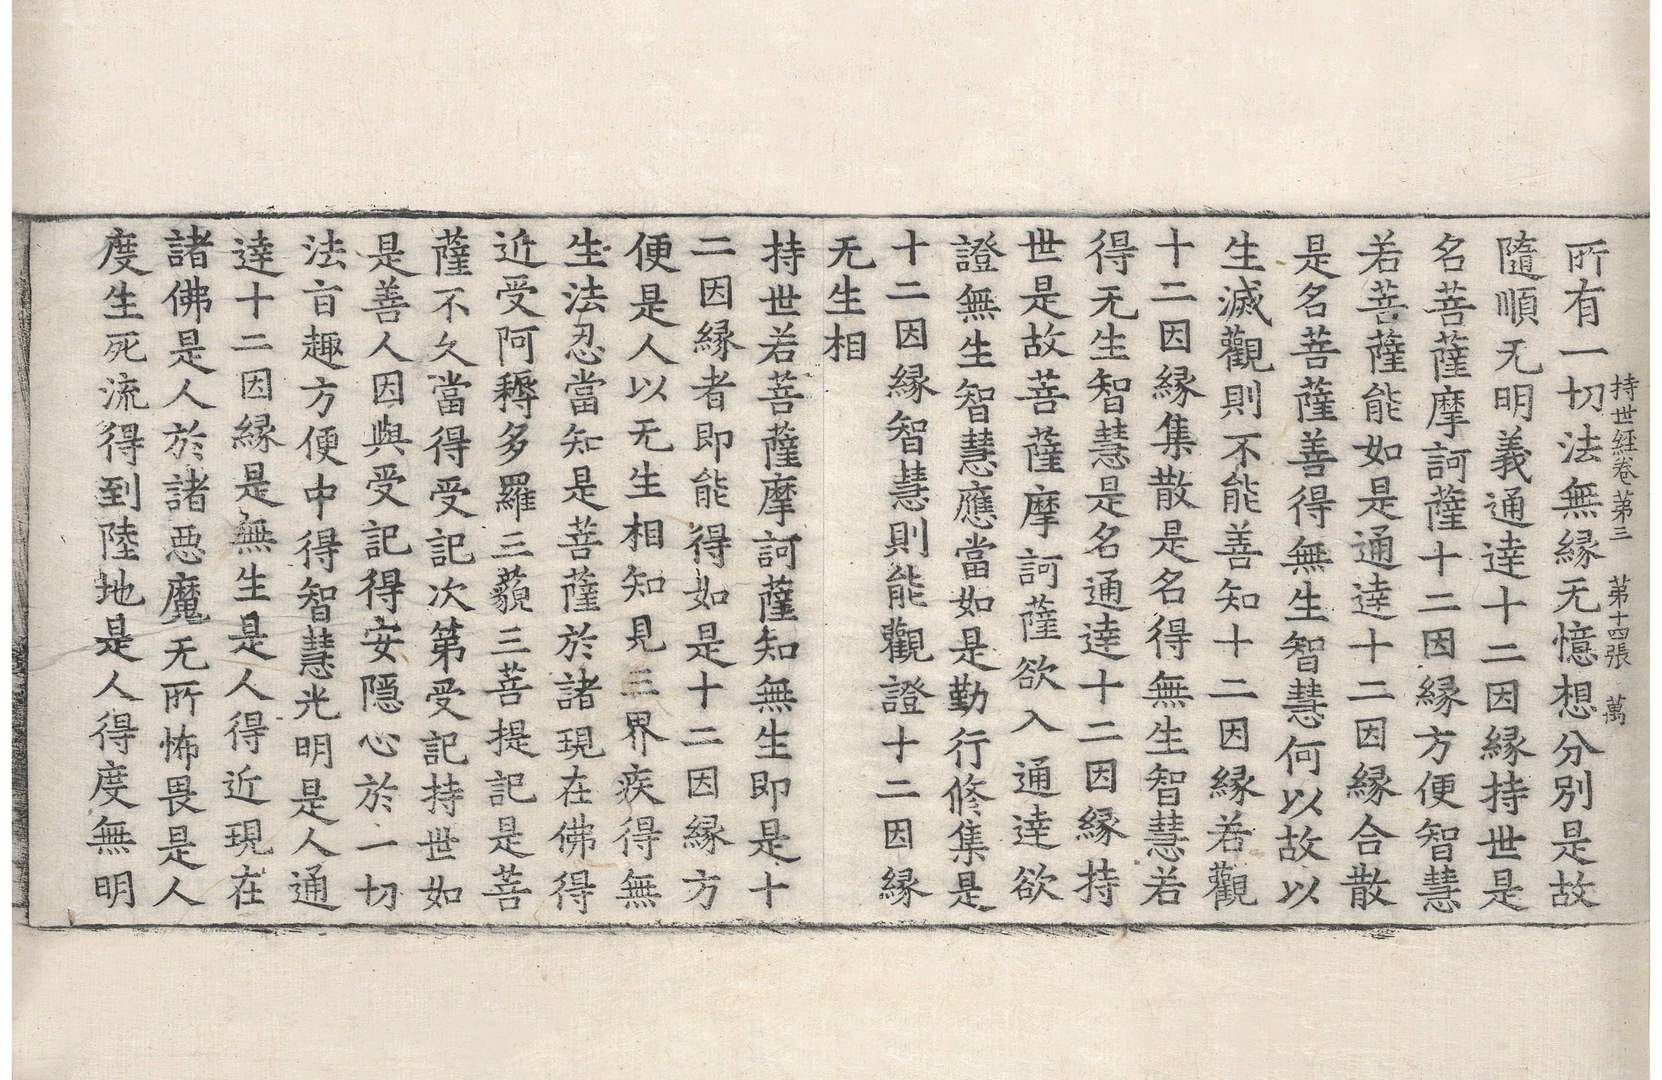 持世經卷第三　第十四張　萬
所有一切法無縁无憶想分別是故
隨順无明義通達十二因縁持世是
名菩薩摩訶薩十二因縁方便智慧
若菩薩能如是通達十二因縁合散
是名菩薩善得無生智慧何以故以
生滅觀則不能善知十二因縁若觀
十二因縁集散是名得無生智慧若
得无生智慧是名通達十二因縁持
世是故菩薩摩訶薩欲入通達欲
證無生智慧應當如是勤行修集是
十二因縁智慧則能觀證十二因縁
无生相
持世若菩薩摩訶薩知無生即是十
二因縁者即能得如是十二因縁方
便是人以无生相知見三界疾得無
生法忍當知是菩薩於諸現在佛得
近受阿耨多羅三藐三菩提記是菩
薩不久當得受記次第受記持世如
是善人因與受記得安隱心於一切
法盲趣方便中得智慧光明是人通
達十二因縁是無生是人得近現在
諸佛是人於諸惡魔无所怖畏是人
度生死流得到陸地是人得度無明